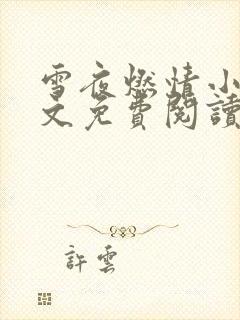 雪夜燃情小
文免費閱讀
許雲